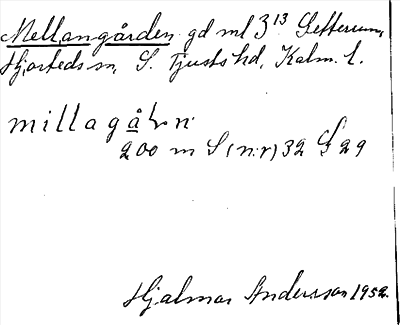 Mellangården gd ml 3¹³ Setterum,
Hjorteds sn, S. Tjusts hd, Kalm. l.
millagå n
200 m S (n:r) 32 29
Hjalmar Andersson 1952.